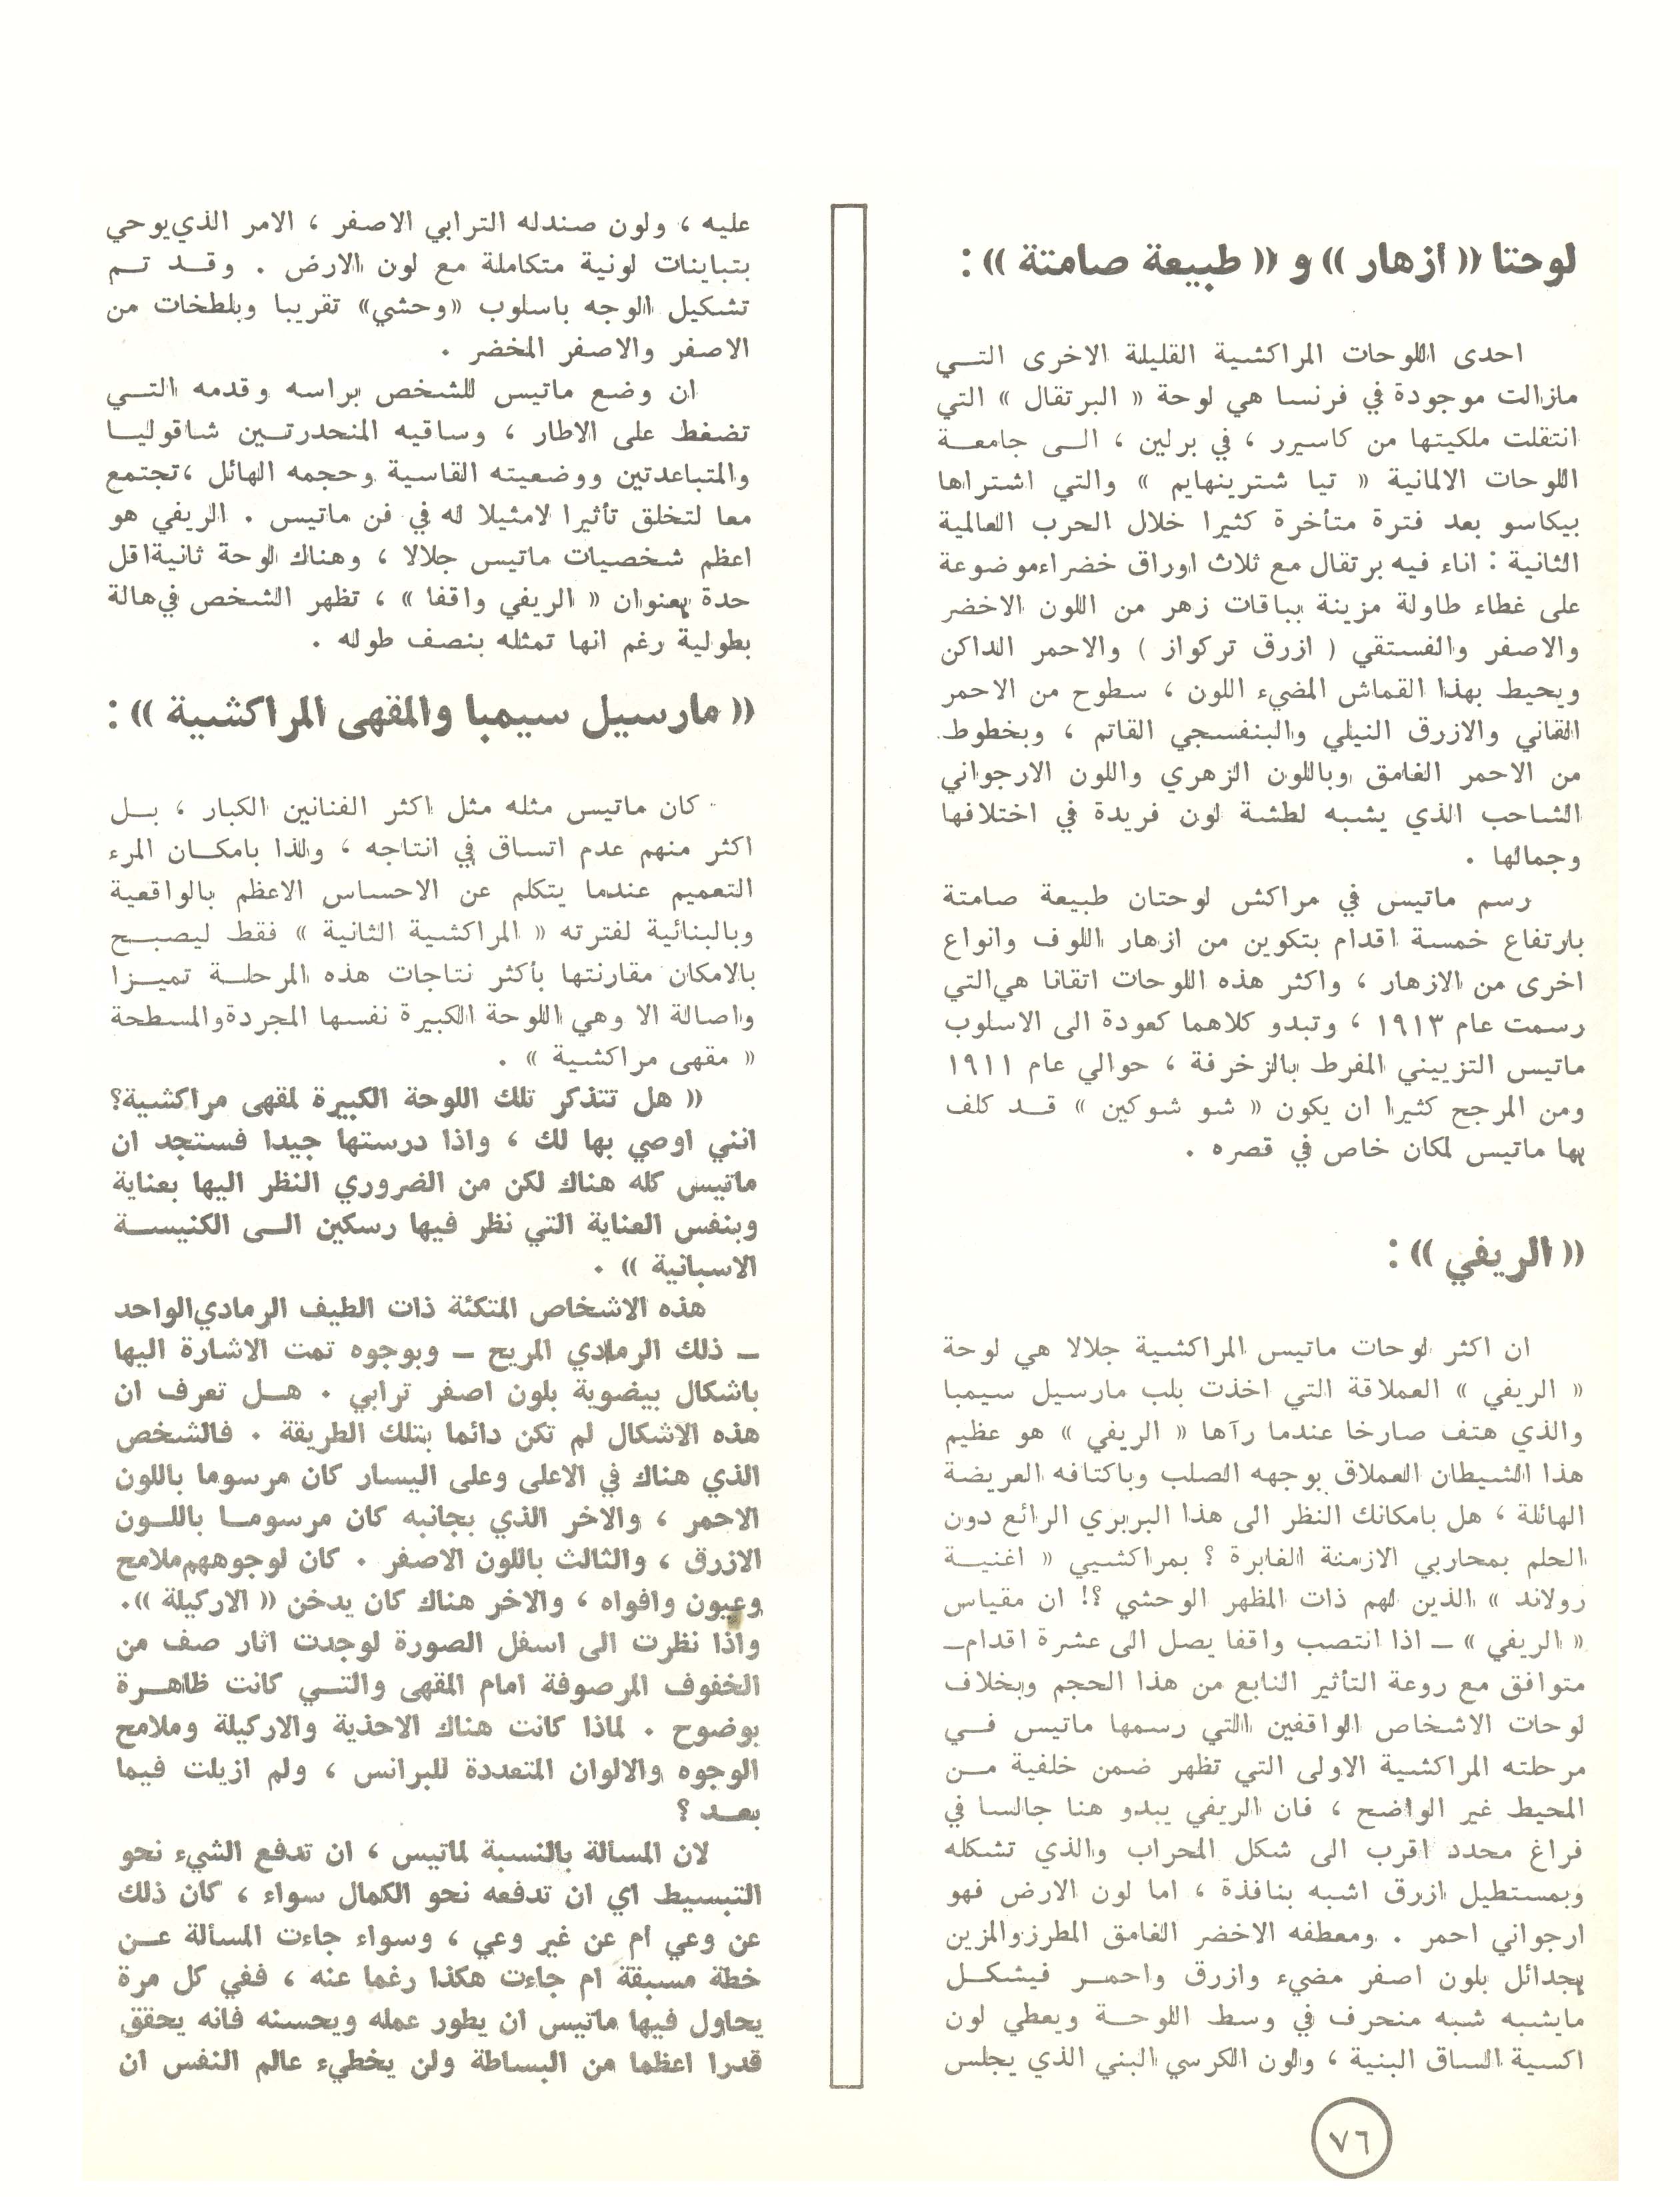 لوحتا «ازهار» و «طبيعة صامتة» :
احدى اللوحات المراكشية القليلة الاخرى التـــي
مازالت موجودة في فرنسا هي لوحة « البرتقال » التي
انتقلت ملكيتها من كاسيرر ، في برلين ، الـــى جامعــة
اللوحات الالمانية « تيا شترينهايم » والتي اشتراها
بيكاسو بعد فترة متأخرة كثيرا خلال الحرب العالمية
الثانية : اناء فيه برتقال مع ثلاث اوراق خضراء موضوعة
على غطاء طاولة مزينة بباقات زهر من اللون الاخضر
والاصفر والفستقي ( ازرق تركواز ) والاحمر الداكن
ويحيط بهذا القماش المضيء اللون ، سطوح من الاحمر
القاني والازرق النيلي والبنفسجي القاتم ، وبخطوط
من الاحمر الغامق وباللون الزهري واللون الارجواني
الشاحب الذي يشبه لطشة لون فريدة في اختلافها
وجمالها .
رسم ماتيس في مراكش لوحتان طبيعة صامتة
بارتفاع خمسة اقدام بتكوين من ازهار اللوف وانواع
اخرى من الازهار ، واكثر هذه اللوحات اتقانا هي التي
رسمت عام ١٩١٣ ، وتبدو كلاهما كعودة الى الاسلوب
ماتيس التزييني المفرط بالزخرفة ، حوالي عام ١٩١١
ومن المرجح كثيرا ان يكون « شو شوكين » قــد كلف
بها ماتيس لمكان خاص في قصره .
« الريفي » :
ان اكثر لوحات ماتيس المراكشية جلالا هي لوحة
« الريفي » العملاقة التي اخذت بلب مارسيل سيمبا
والذي هتف صارخا عندما رآها « الريفي » هو عظيم
هذا الشيطان العملاق بوجهه الصلب وباكتافه العريضة
الهائلة ، هل بامكانك النظر الى هذا البربري الرائع دون
الحلم بمحاربي الازمنة الغابرة ؟ بمراكشيي « اغنيــة
رولاند » الذين لهم ذات المظهر الوحشي ؟! ان مقياس
« الريفي » – اذا انتصب واقفا يصل الى عشرة اقدام–
متوافق مع روعة التأثير النابع من هذا الحجم وبخلاف
لوحات الاشخاص الواقفين التي رسمها ماتيس فــي
مرحلته المراكشية الاولى التي تظهر ضمن خلفية مــن
المحيط غير الواضح ، فان الريفي يبدو هنا جالسا في
فراغ محدد اقرب الى شكل المحراب والذي تشكله
وبمستطيل ازرق اشبه بنافذة ، اما لون الارض فهو
ارجواني احمر . ومعطفه الاخضر الغامق المطرز والمزين
بجدائل بلون اصفر مضيء وازرق واحمــر فيشكــل
مايشبه شبه منحرف في وسط اللوحــة ويعطي لون
اكسية الساق البنية ، ولون الكرسي البني الذي يجلس
عليه ، ولون صندله الترابي الاصفر ، الامر الذي يوحي
بتباينات لونية متكاملة مع لون الارض . وقــد تــم
تشكيل الوجه باسلوب «وحشي» تقريبا وبلطخات من
الاصفر والاصفر المخضر .
ان وضع ماتيس للشخص براسه وقدمه التــي
تضغط على الاطار ، وساقيه المنحدرتــين شاقوليــا
والمتباعدتين ووضعيته القاسية وحجمه الهائل ، تجتمع
معا لتخلق تأثيرا لامثيلا له في فن ماتيس . الريفي هو
اعظم شخصيات ماتيس جلالا ، وهناك لوحة ثانية اقل
حدة بعنوان « الريفي واقفا » ، تظهر الشخص في هالة
بطولية رغم انها تمثله بنصف طوله .
« مارسيل سيمبا والمقهى المراكشية » :
كان ماتيس مثله مثل اكثر الفنانين الكبار ، بــل
اكثر منهم عدم اتساق في انتاجه ، ولذا بامكــان المرء
التعميم عندما يتكلم عن الاحساس الاعظم بالواقعية
وبالبنائية لفترته « المراكشية الثانية » فقط ليصبــح
بالامكان مقارنتها بأكثر نتاجات هذه المرحلــة تميــزا
واصالة الا وهي اللوحة الكبيرة نفسها المجردة والمسطحة
« مقهى مراكشية » .
« هل تتذكر تلك اللوحة الكبيرة لمقهى مراكشية؟
انني اوصي بها لك ، واذا درستها جيدا فستجد ان
ماتيس كله هناك لكن من الضروري النظر اليها بعناية
وبنفس العناية التي نظر فيها رسكين الــى الكنيســة
الاسبانية » .
هذه الاشخاص المتكئة ذات الطيف الرمادي الواحد
– ذلك الرمادي المريح – وبوجوه تمت الاشارة اليها
باشكال بيضوية بلون اصفر ترابي . هــل تعرف ان
هذه الاشكال لم تكن دائما بتلك الطريقة . فالشخص
الذي هناك في الاعلى وعلى اليسار كان مرسوما باللون
الاحمر ، والاخر الذي بجانبه كان مرسومــا باللــون
الازرق ، والثالث باللون الاصفر . كان لوجوههم ملامح
وعيون وافواه ، والاخر هناك كان يدخن « الاركيلة ».
واذا نظرت الى اسفل الصورة لوجدت اثار صف من
الخفوف المرصوفة امام المقهى والتــي كانت ظاهــرة
بوضوح . لماذا كانت هناك الاحذية والاركيلة وملامح
الوجوه والالوان المتعددة للبرانس ، ولم ازيلت فيما
بعــد ؟
لان المسألة بالنسبة لماتيس ، ان تدفع الشيء نحو
التبسيط اي ان تدفعه نحو الكمال سواء ، كان ذلك
عن وعي ام عن غير وعي ، وسواء جاءت المسألة عــن
خطة مسبقة ام جاءت هكذا رغما عنه ، ففي كل مرة
يحاول فيها ماتيس ان يطور عمله ويحسنه فانه يحقق
قدرا اعظما من البساطة ولن يخطيء عالم النفس ان
٧٦